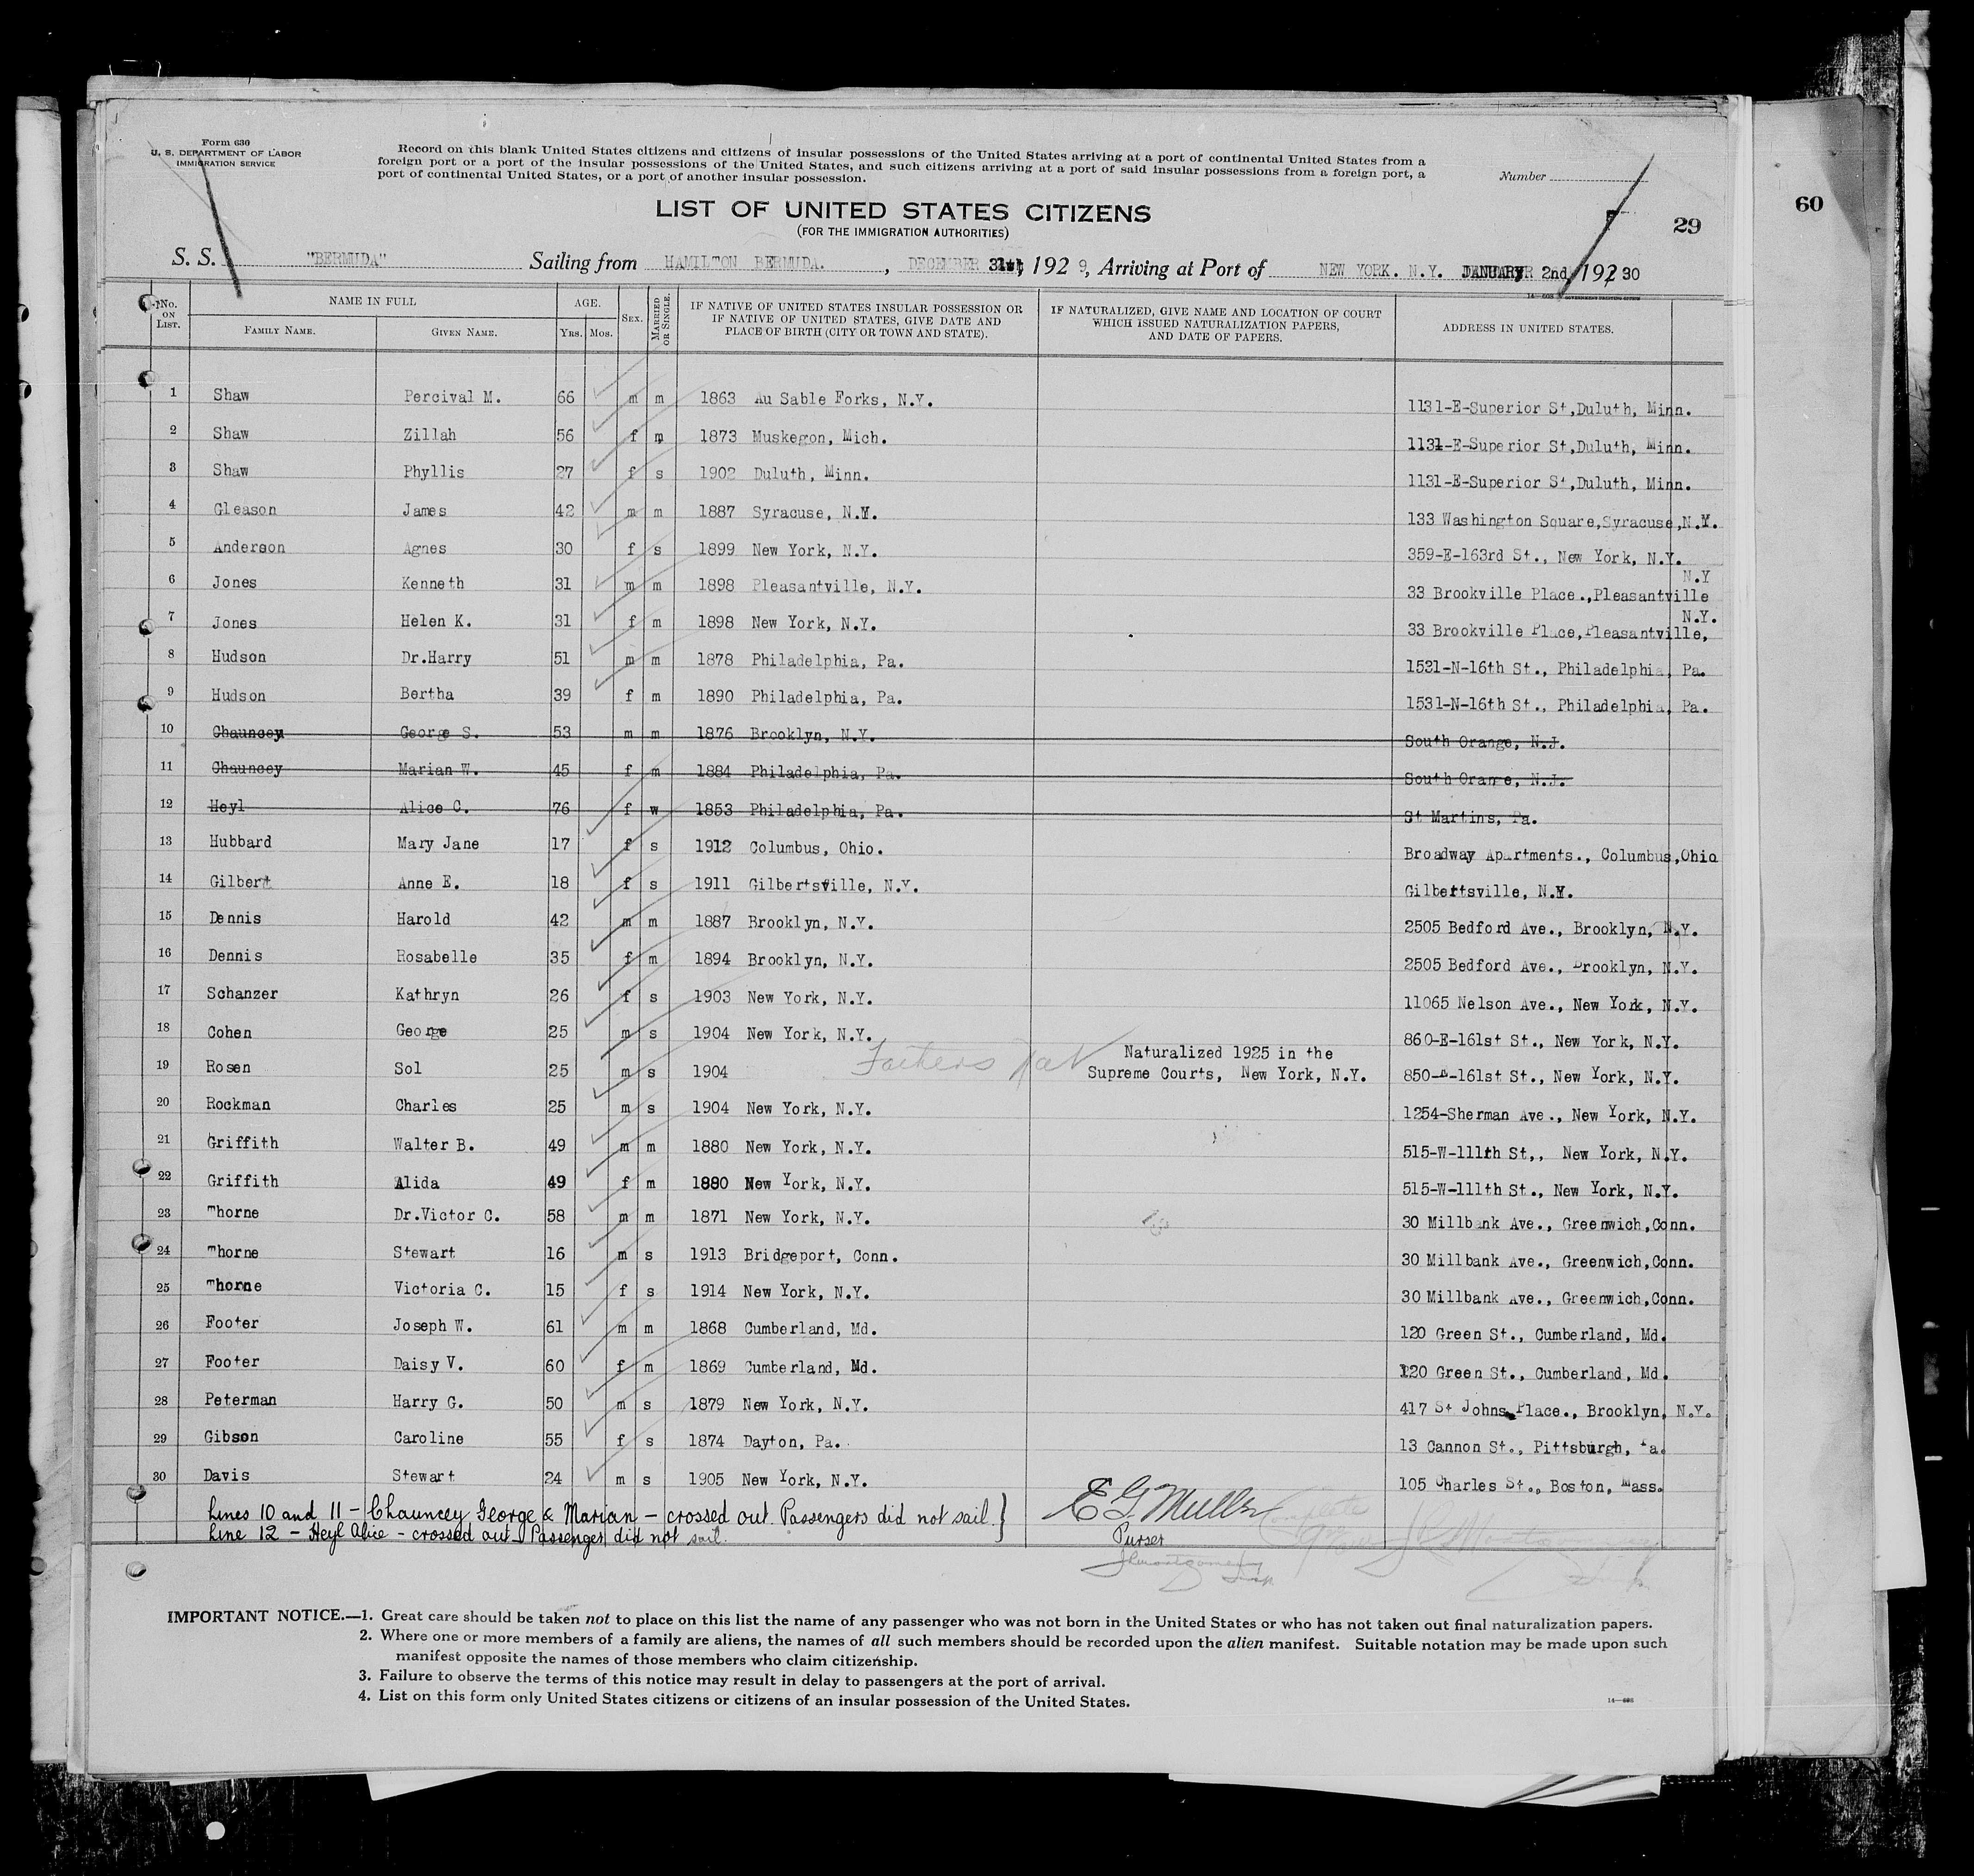 Form 630
U. S. DEPARTMENT OF LABOR
IMMIGRATION SERVICE
Record on this blank United States citizens and citizens of insular possessions of the United States arriving at a port of continental United States from a
foreign port or a port of the insular possessions of the United States, and such citizens arriving at a port of said insular possessions from a foreign port, a
port of continental United States, or a port of another insular possession.
Number
LIST OF UNITED STATES CITIZENS
(FOR THE IMMIGRATION AUTHORITIES)
29
60
S. S. "BERMUDA" Sailing from HAMILTON BERMUDA. , DECEMBER 31st, 1929, Arriving at Port of NEW YORK. N.Y. JANUARY 2nd, 1930
No. ON LIST. NAME IN FULL AGE. SEX. MARRIED OR SINGLE. IF NATIVE OF UNITED STATES INSULAR POSSESSION OR IF NATIVE OF UNITED STATES, GIVE DATE AND PLACE OF BIRTH (CITY OR TOWN AND STATE). IF NATURALIZED, GIVE NAME AND LOCATION OF COURT WHICH ISSUED NATURALIZATION PAPERS, AND DATE OF PAPERS. ADDRESS IN UNITED STATES.
FAMILY NAME. GIVEN NAME. YRS. MOS.
1 Shaw Percival M. 66 m m 1863 Au Sable Forks, N.Y. 1131-E-Superior St,Duluth, Minn.
2 Shaw Zillah 56 f m 1873 Muskegon, Mich. 1131-E-Superior St,Duluth, Minn.
3 Shaw Phyllis 27 f s 1902 Duluth, Minn. 1131-E-Superior St,Duluth, Minn.
4 Gleason James 42 m m 1887 Syracuse, N.Y. 133 Washington Square,Syracuse,N.Y.
5 Anderson Agnes 30 f s 1899 New York, N.Y. 359-E-163rd St., New York, N.Y.
6 Jones Kenneth 31 m m 1898 Pleasantville, N.Y. 33 Brookville Place.,Pleasantville N.Y
7 Jones Helen K. 31 f m 1898 New York, N.Y. 33 Brookville Place,Pleasantville, N.Y.
8 Hudson Dr.Harry 51 m m 1878 Philadelphia, Pa. 1531-N-16th St., Philadelphia, Pa.
9 Hudson Bertha 39 f m 1890 Philadelphia, Pa. 1531-N-16th St., Philadelphia, Pa.
10 Chauncey George S. 53 m m 1876 Brooklyn, N.Y. South Orange, N.J.
11 Chauncey Marian W. 45 f m 1884 Philadelphia, Pa. South Orange, N.J.
12 Heyl Alice C. 76 f w 1853 Philadelphia, Pa. St Martins, Pa.
13 Hubbard Mary Jane 17 f s 1912 Columbus, Ohio. Broadway Apartments., Columbus,Ohio
14 Gilbert Anne E. 18 f s 1911 Gilbertsville, N.Y. Gilbertsville, N.Y.
15 Dennis Harold 42 m m 1887 Brooklyn, N.Y. 2505 Bedford Ave., Brooklyn, N.Y.
16 Dennis Rosabelle 35 f m 1894 Brooklyn, N.Y. 2505 Bedford Ave., Brooklyn, N.Y.
17 Schanzer Kathryn 26 f s 1903 New York, N.Y. 11065 Nelson Ave., New York, N.Y.
18 Cohen George 25 m s 1904 New York, N.Y. 860-E-161st St., New York, N.Y.
19 Rosen Sol 25 m s 1904 Fathers Nat Naturalized 1925 in the Supreme Courts, New York, N.Y. 850-E-161st St., New York, N.Y.
20 Rockman Charles 25 m s 1904 New York, N.Y. 1254-Sherman Ave., New York, N.Y.
21 Griffith Walter B. 49 m m 1880 New York, N.Y. 515-W-111th St,, New York, N.Y.
22 Griffith Alida 49 f m 1880 New York, N.Y. 515-W-111th St., New York, N.Y.
23 Thorne Dr.Victor C. 58 m m 1871 New York, N.Y. 30 Millbank Ave., Greenwich,Conn.
24 Thorne Stewart 16 m s 1913 Bridgeport, Conn. 30 Millbank Ave., Greenwich,Conn.
25 Thorne Victoria C. 15 f s 1914 New York, N.Y. 30 Millbank Ave., Greenwich,Conn.
26 Footer Joseph W. 61 m m 1868 Cumberland, Md. 120 Green St., Cumberland, Md.
27 Footer Daisy V. 60 f m 1869 Cumberland, Md. 120 Green St., Cumberland, Md.
28 Peterman Harry G. 50 m s 1879 New York, N.Y. 417 St Johns Place., Brooklyn, N.Y.
29 Gibson Caroline 55 f s 1874 Dayton, Pa. 13 Cannon St., Pittsburgh, Pa.
30 Davis Stewart 24 m s 1905 New York, N.Y. 105 Charles St., Boston, Mass.
Lines 10 and 11 - Chauncey George & Marian - crossed out. Passengers did not sail. }
Line 12 - Heyl Alice - crossed out - Passenger did not sail.
E G Muller
Purser
IMPORTANT NOTICE.—1. Great care should be taken not to place on this list the name of any passenger who was not born in the United States or who has not taken out final naturalization papers.
2. Where one or more members of a family are aliens, the names of all such members should be recorded upon the alien manifest. Suitable notation may be made upon such
manifest opposite the names of those members who claim citizenship.
3. Failure to observe the terms of this notice may result in delay to passengers at the port of arrival.
4. List on this form only United States citizens or citizens of an insular possession of the United States.